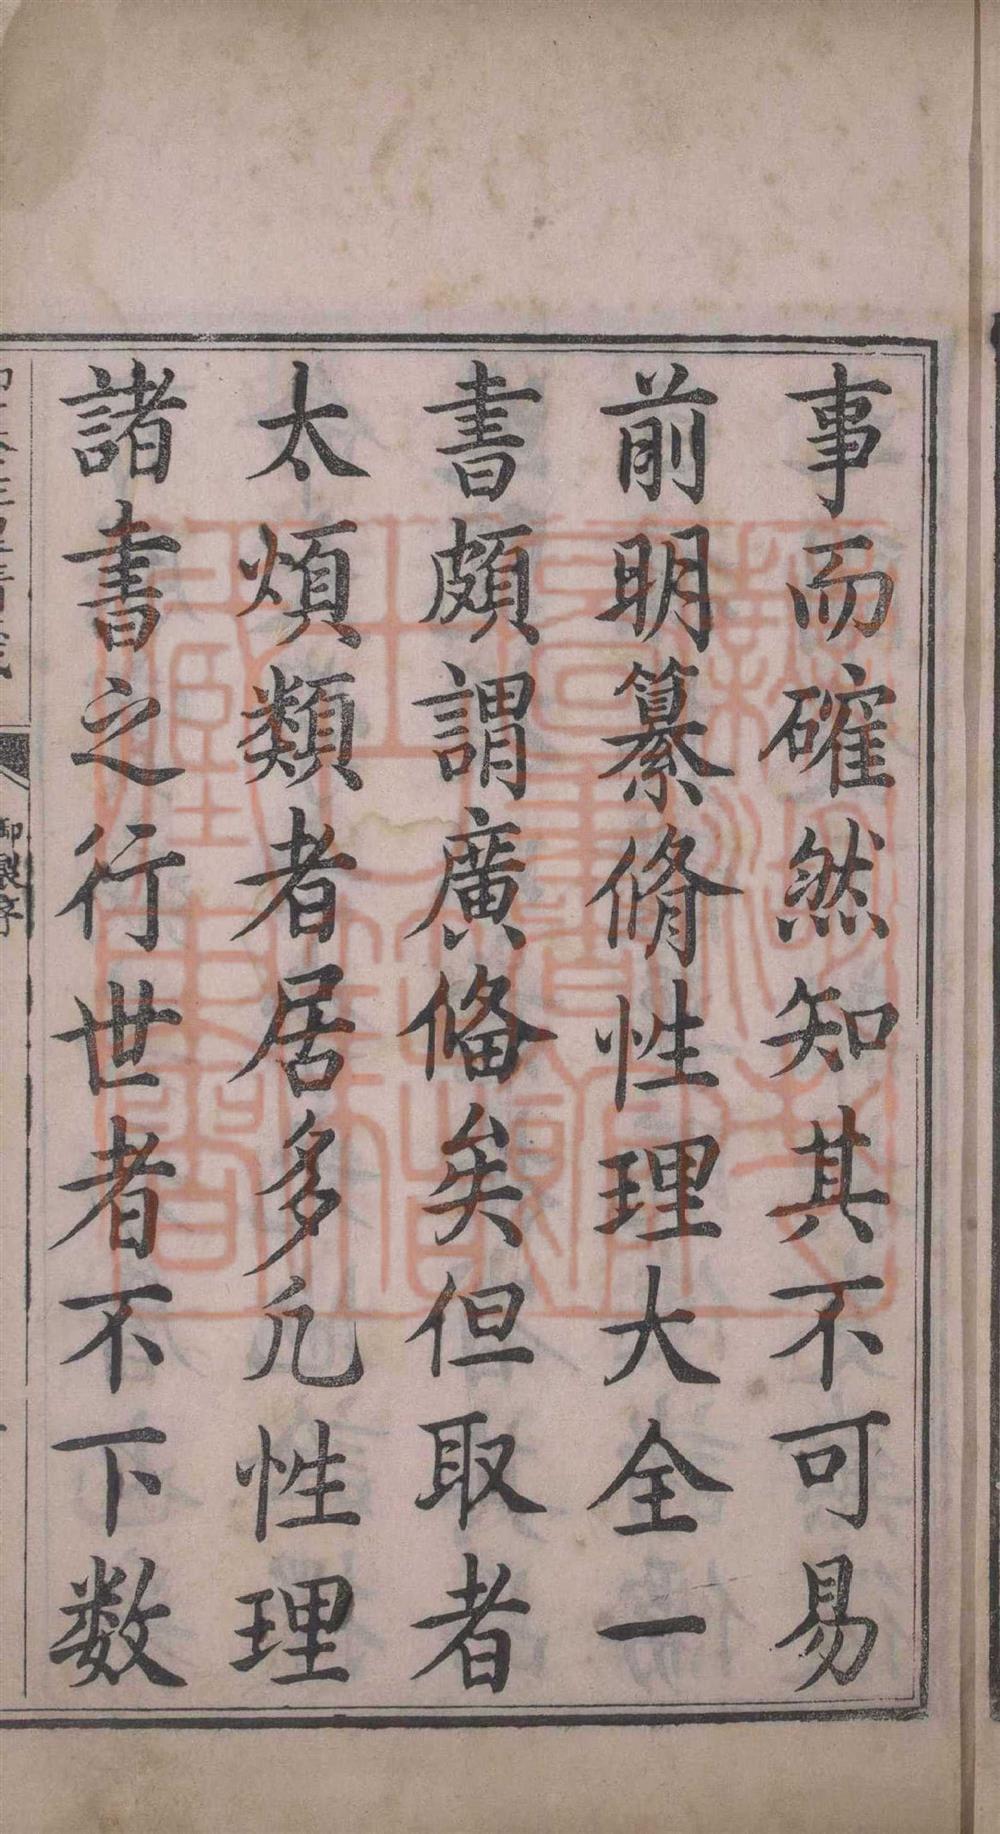 事而確然知其不可易
前明纂脩性理大全一
書頗謂廣俻矣但取者
太煩類者居多凢性理
諸書之行世者不下数
御製序